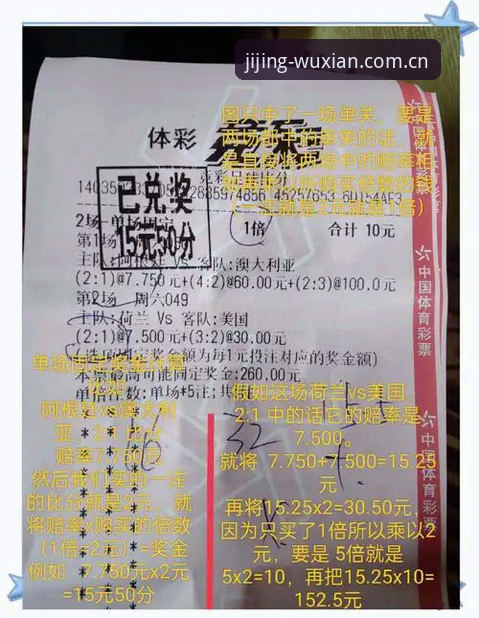 jijing-wuxian.com.cn
体彩
竞彩
图只中了一场单关，要是
两场都中的单关的话，就
是直接将两场中的赔率相
（一注就是2元就是1倍）
已兑奖
15元50分
2场-单场固定
1倍
合计 10元
第1场
主队:阿根廷 Vs 客队:澳大利亚
(2:1)@7.750元+(4:2)@60.00元+(2:3)@100.0元
第2场 周六049
主队:荷兰 Vs 客队:美国
(2:1)@7.500元+(3:2)@30.00元
(选项固定奖金额为每1元投注对应的奖金额)
本票最高可能固定奖金:260.00元
单倍注数:单场*5注;共
中国体育彩票
中国体育彩票
单场固定奖金计算
阿根廷vs澳大利
亚，2:1 比分
赔率7.750元
然后我们买的一注
的比分就是2元，就
将赔率x购买的倍数
（1倍=2元）=奖金
例如 7.750元x2元
=15元50分
假如这场荷兰vs美国，
2:1 中的话它的赔率是
7.500。
就将 7.750+7.500=15.25
元
再将15.25x2=30.50元，
因为只买了1倍所以乘以2
元，要是 5倍就是
5x2=10，再把15.25x10=
152.5元